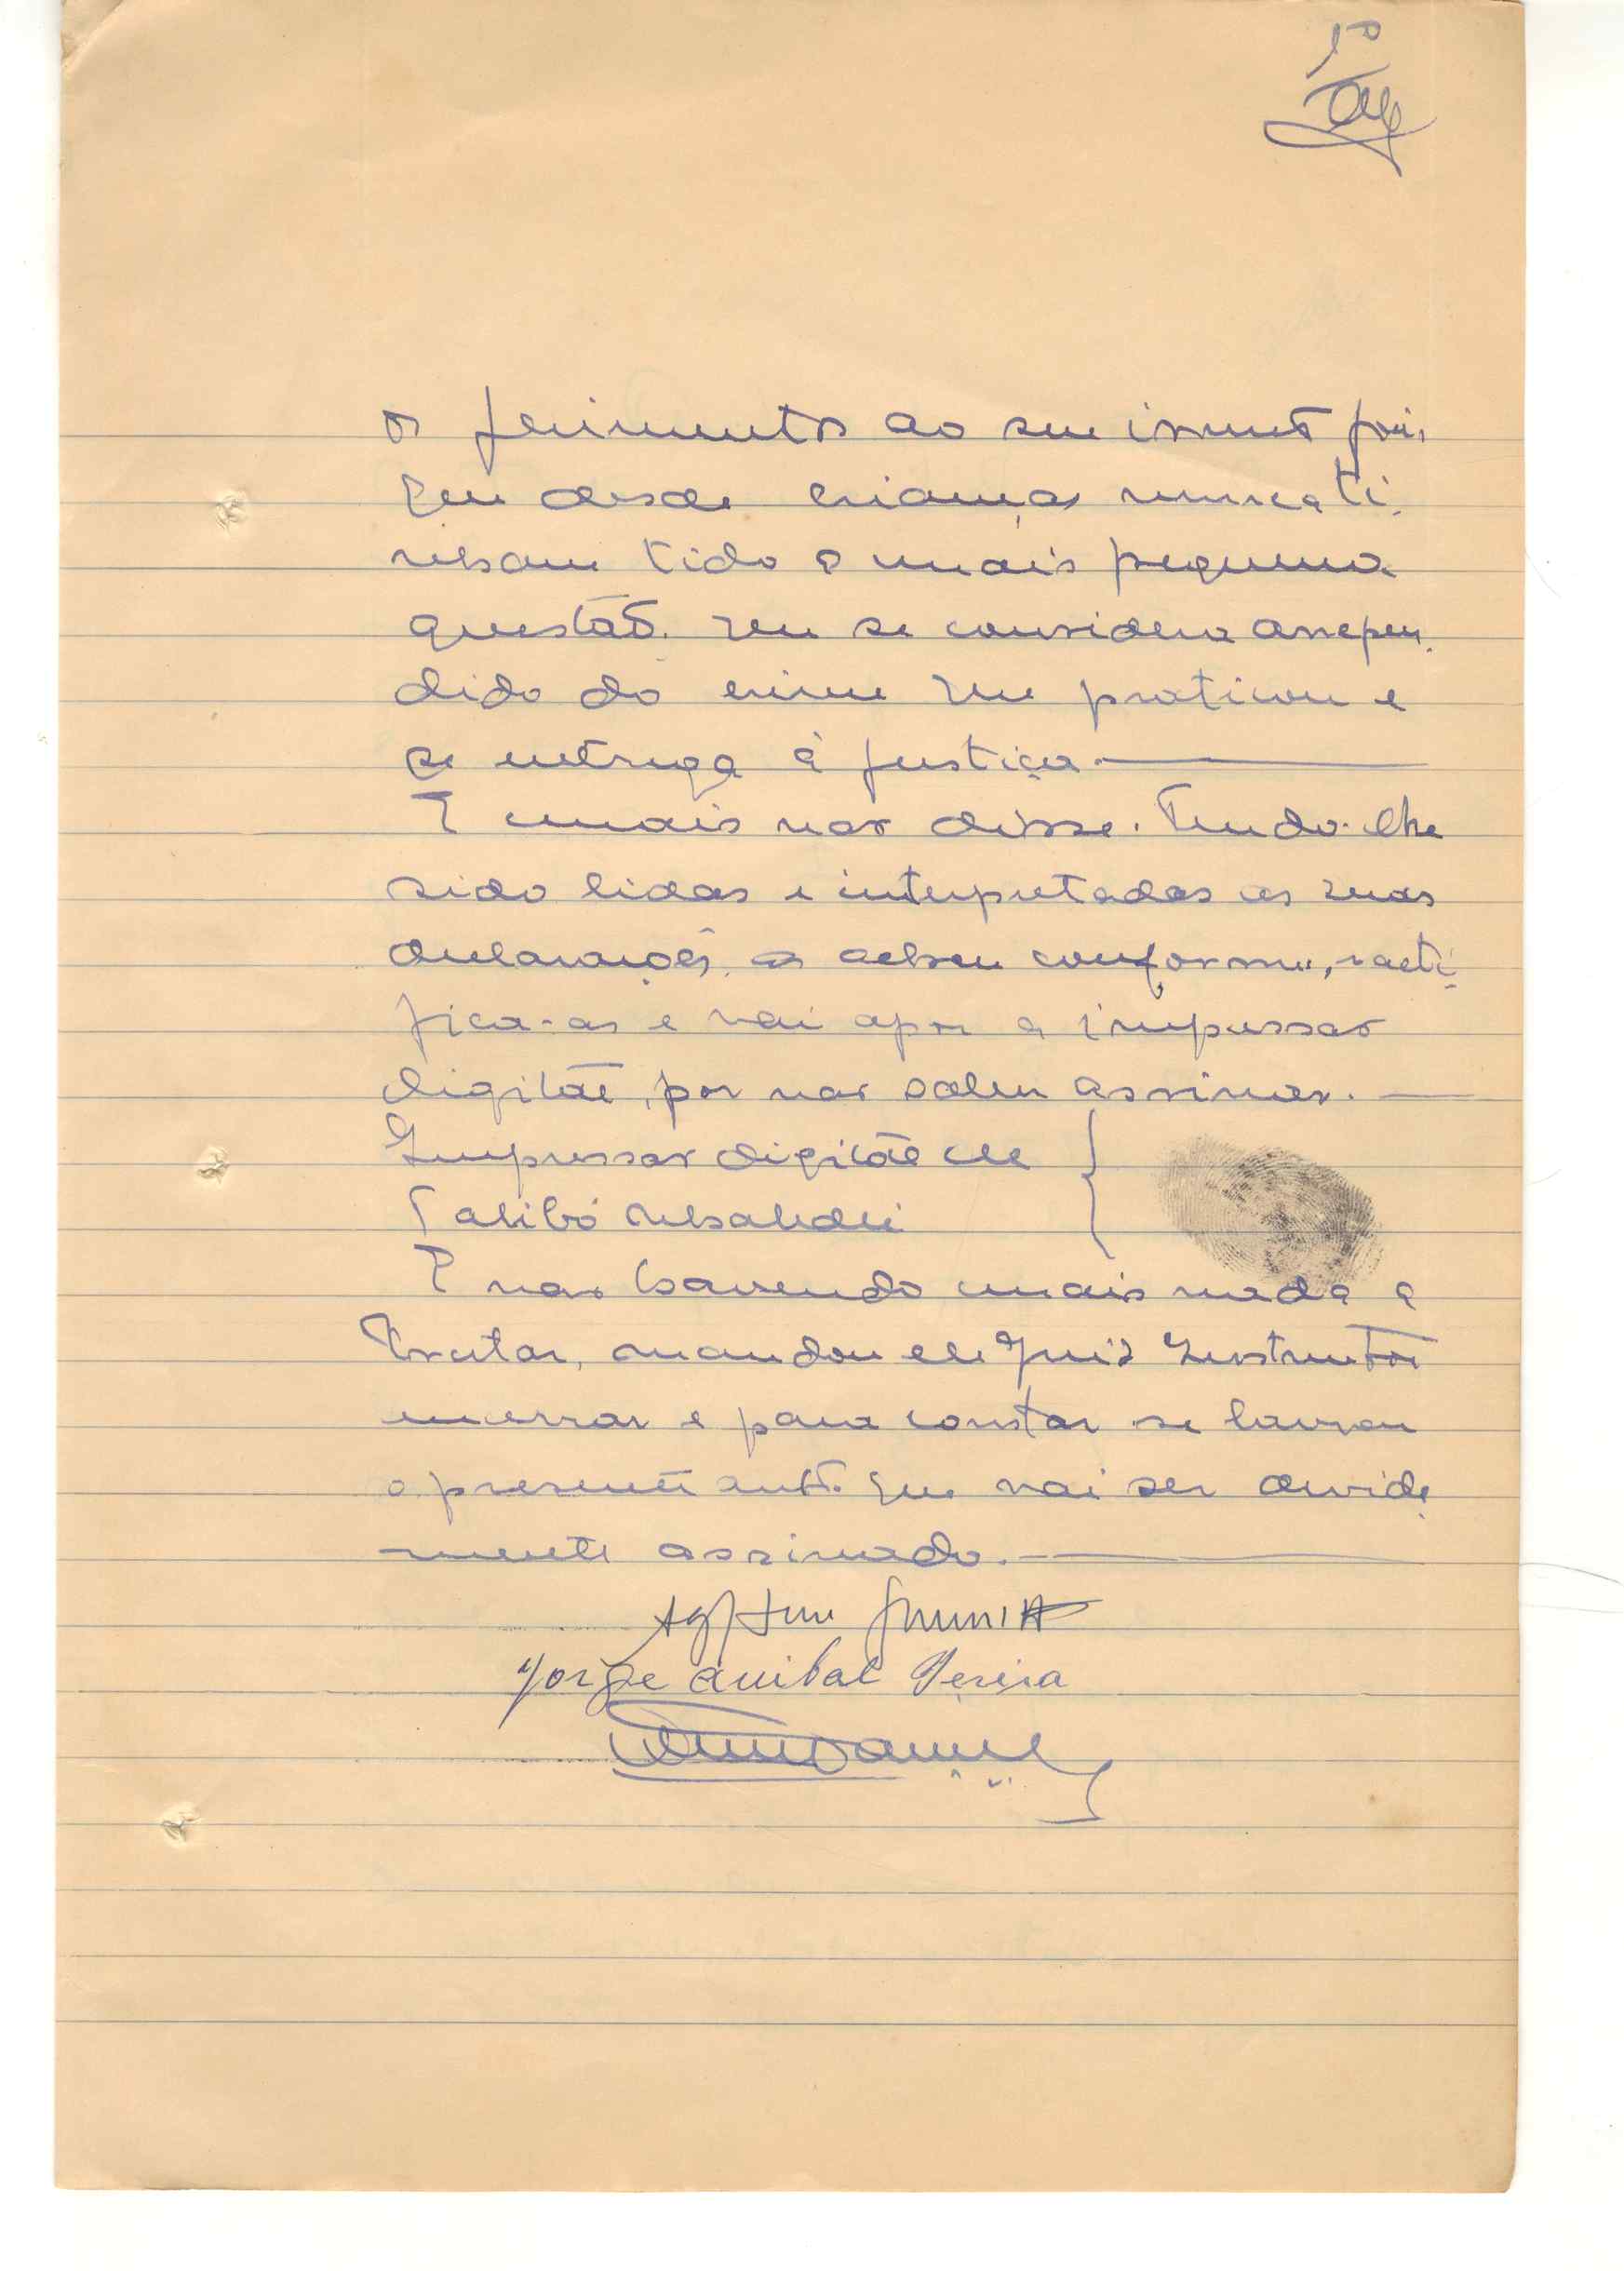 os ferimentos ao seu irmão pois
que desde criança nunca ti-
nham tido a mais pequena
questão. que se considera arrepen-
dido do crime que praticou e
se entrega à justiça.
E mais não disse. Tendo-lhe
sido lidas e interpretadas as suas
declarações, as achou conforme, rati-
fica-as e vai apor a impressão
digital, por não saber assinar.
Impressão digital de
E não havendo mais nada a
tratar, mandou ele Juiz Instrutor
encerrar e para constar se lavrou
o presente auto que vai ser devida-
mente assinado.
Jorge Anibal Pereira